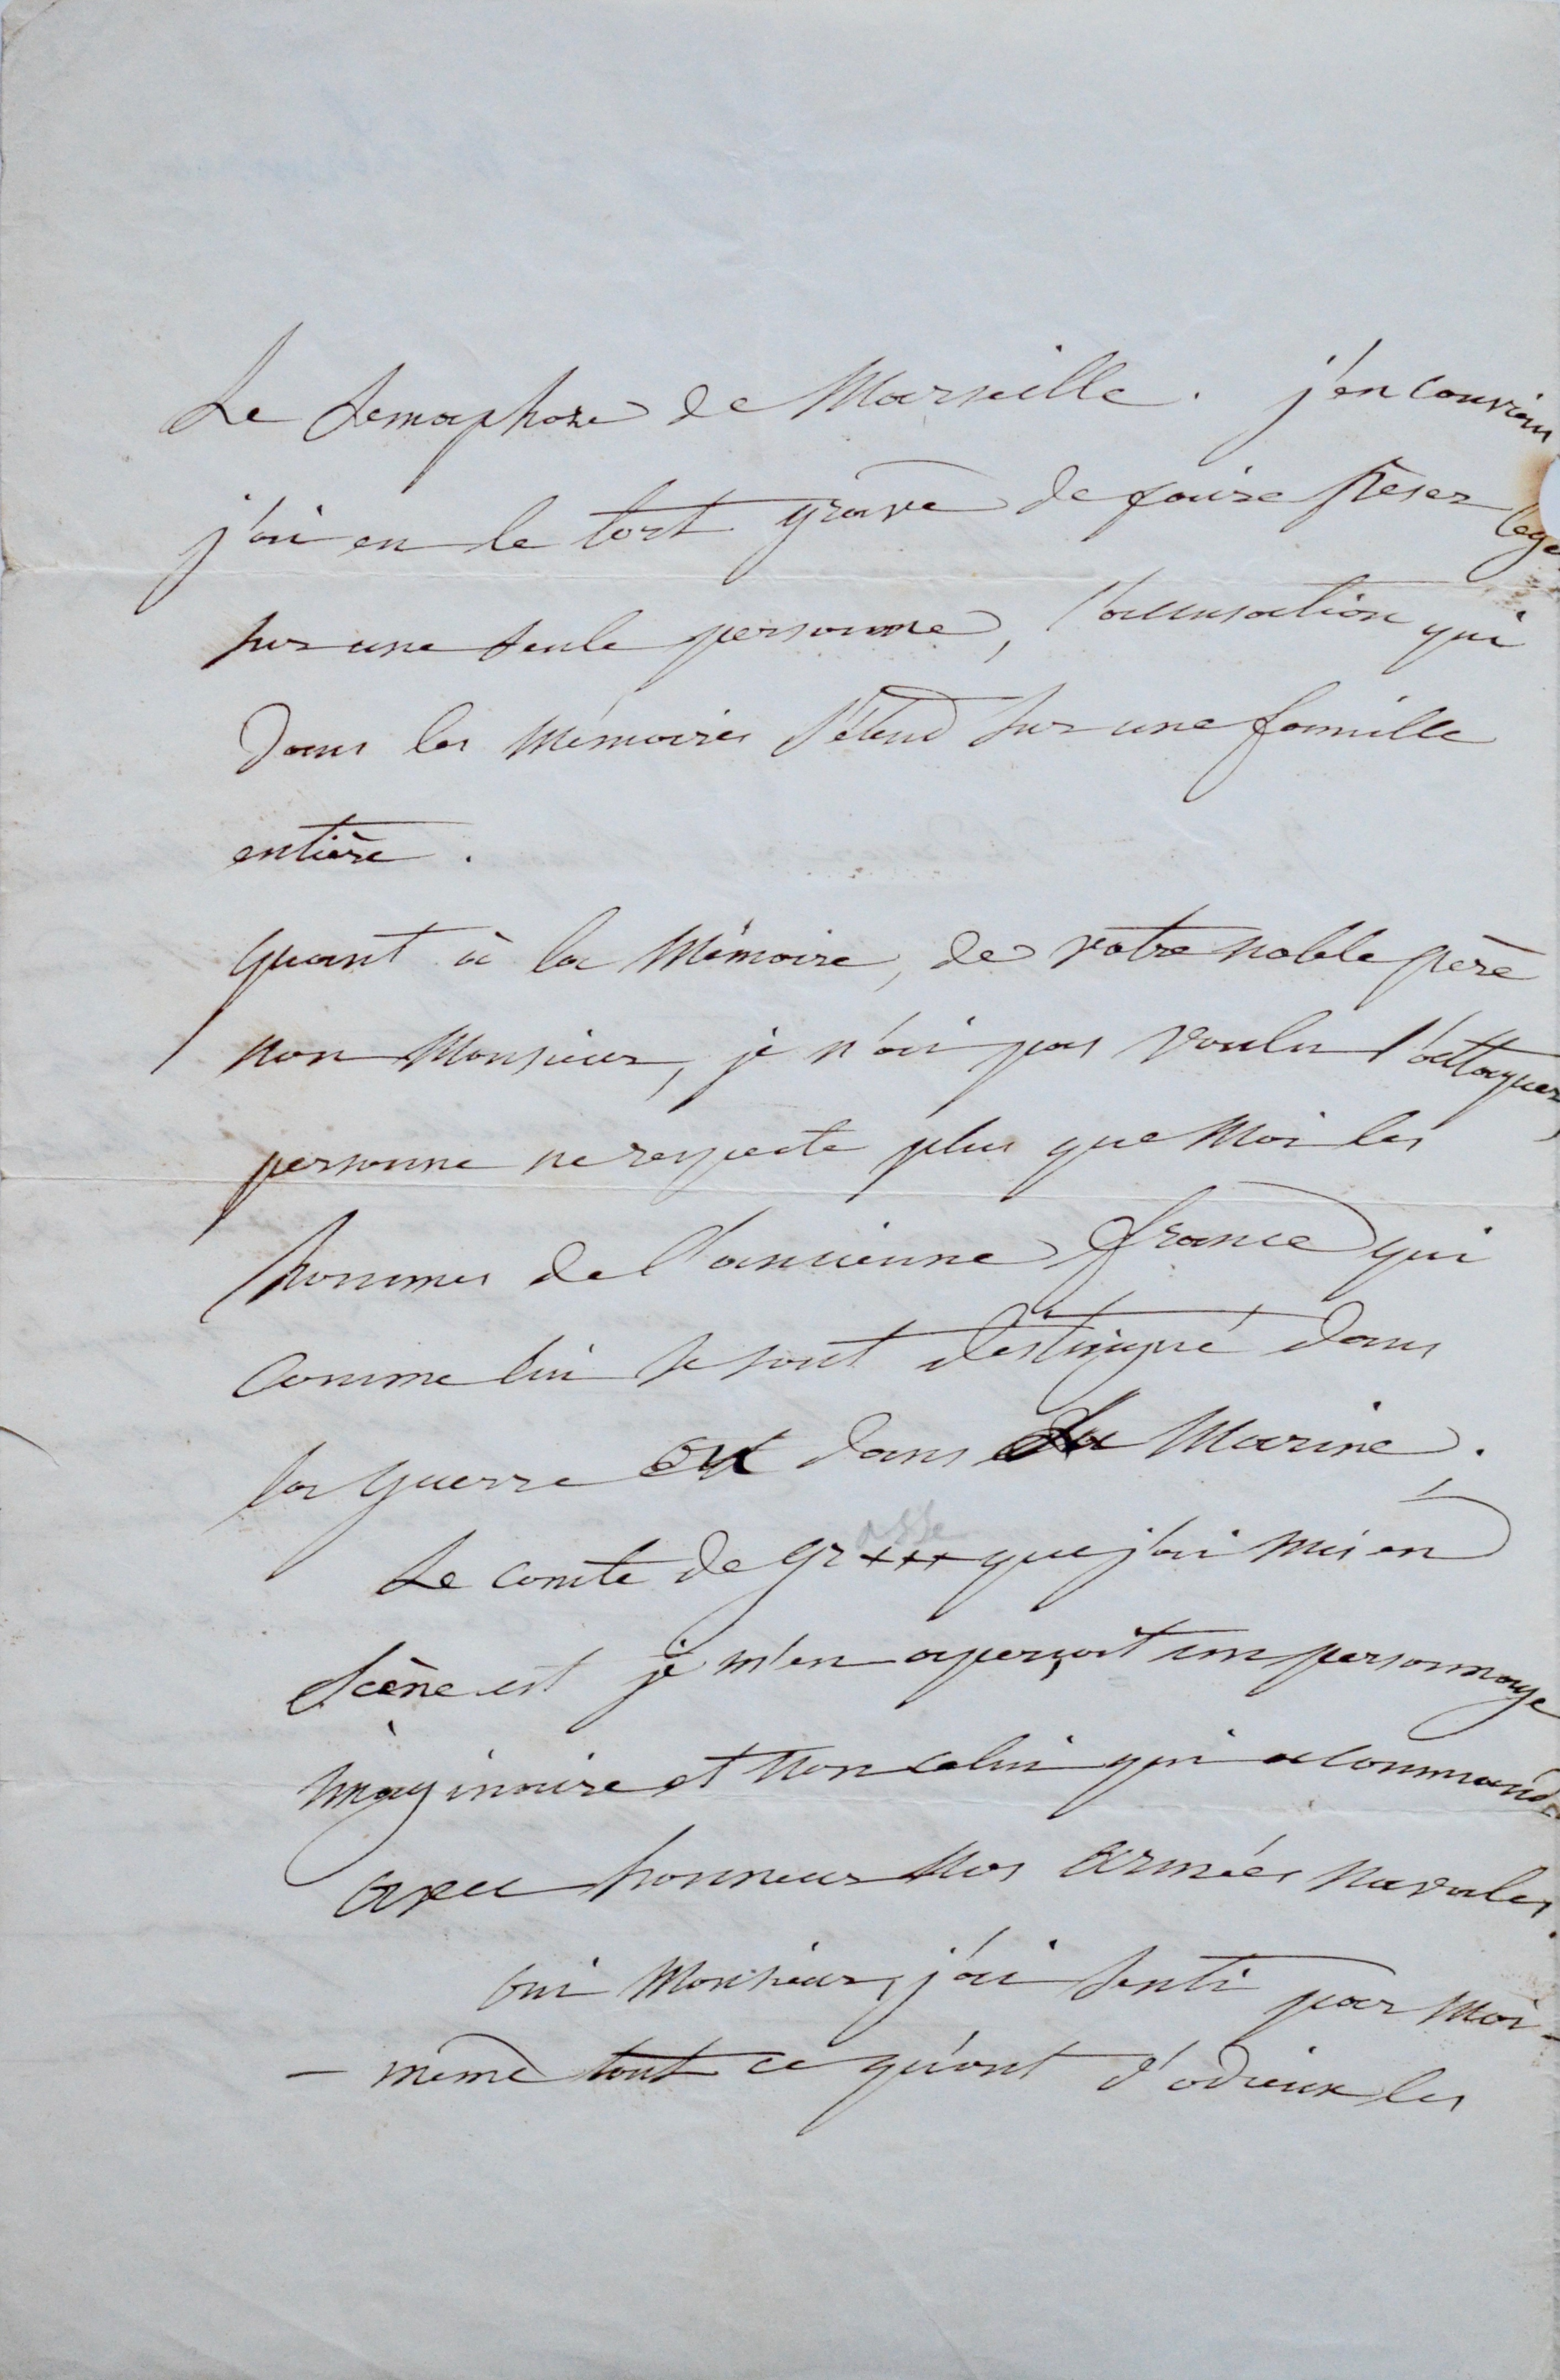 Le semaphore de Marseille. j'en convien
j'ai eu le tort grave de faire peser
sur une seule personne, l'accusation qui
dans les mémoires s'étend sur une famille
entière.
quant à la mémoire, de votre noble père
non Monsieur, je n'ai pas voulu l'attaquer,
personne ne respecte plus que moi les
hommes de l'ancienne france qui
comme lui se sont destingué dans
la guerre et dans la Marine.
asse
Le comte de gr+++ que j'ai mis en
scène est je m'en aperçoit un personnage
imaginaire et non celui qui a command
avec honneur nos armées navales.
oui Monsieur, j'ai senti par moi-
- même tout ce qu'ont d'odieux les